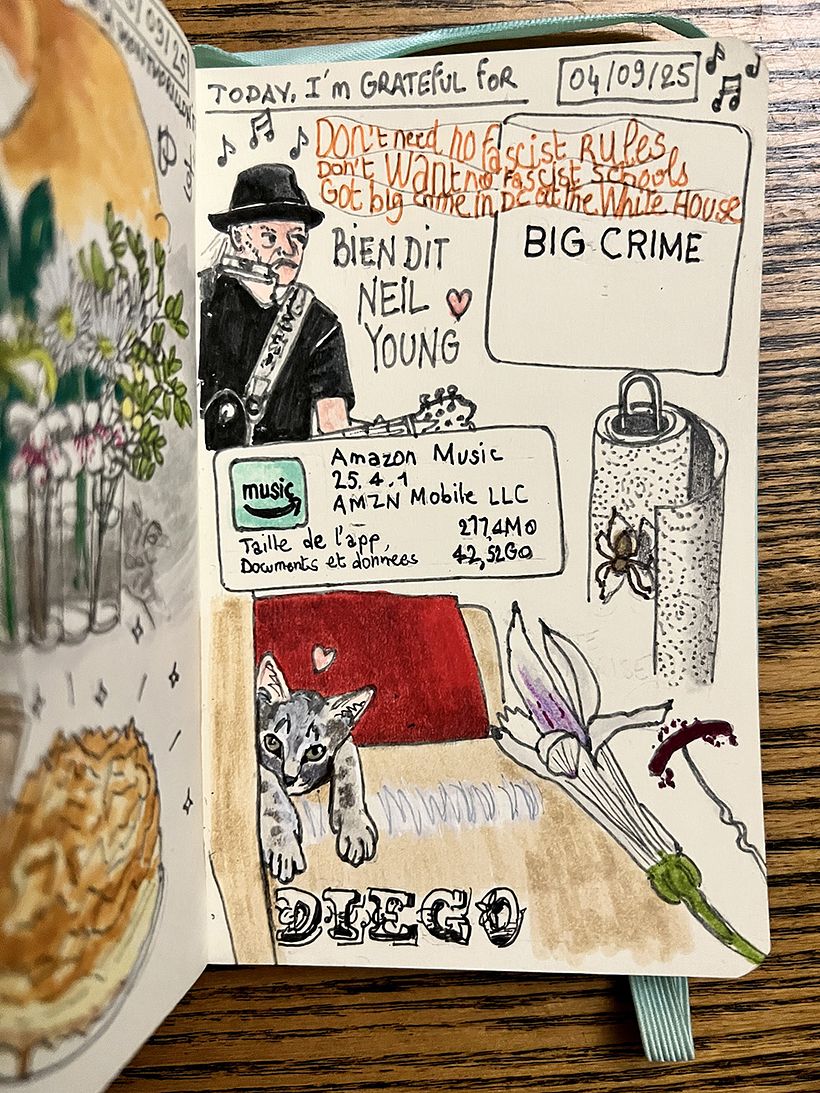 TODAY, I'm GRATEFUL FOR
04/09/25
Don't need no fascist Rules
Don't Want no Fascist Schools
Got big crime in DC at the White House
BIG CRIME
BIEN DIT
NEIL
YOUNG
music
Amazon Music
25.4.1
AMZN Mobile LLC
Taille de l'app. 277,4Mo
Documents et données 42,52Go
DIEGO